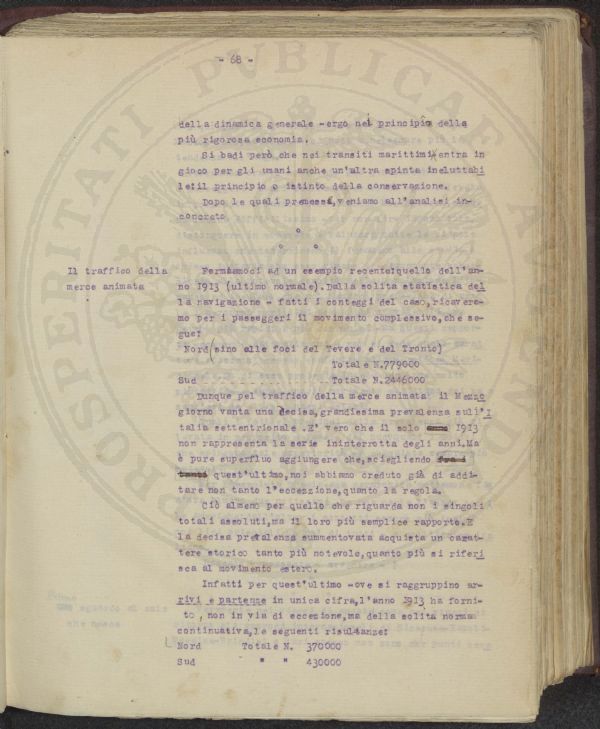 - 68 -
della dinamica generale - ergo nei principio della
più rigorosa economia.
Si badi però che nei transiti marittimi entra in
gioco per gli umani anche un'altra spinta ineluttabi
le: il principio o istinto della conservazione.
Dopo le quali premesse, veniamo all'analisi in-
concreto
Il traffico della
merce animata
Fermiamoci ad un esempio recente: quello dell'an-
no 1913 (ultimo normale). Dalla solita statistica del
la navigazione - fatti i conteggi del caso, ricavere-
mo per i passeggeri il movimento complessivo, che se-
gue:
Nord (sino alle foci del Tevere e del Tronto)
Totale N.779000
Sud . . . . . . . . . . . . Totale N.2446000
Dunque pel traffico della merce animata il Mezzo
giorno vanta una decisa, grandissima prevalenza sull'I
talia settentrionale. E' vero che il solo 1913
non rappresenta la serie ininterrotta degli anni. Ma
è pure superfluo aggiungere che, scegliendo fra i
tanti quest'ultimo, noi abbiamo creduto già di addi-
tare non tanto l'eccezzione, quanto la regola.
Ciò almeno per quello che riguarda non i singoli
totali assoluti, ma il loro più semplice rapporto. E
la decisa prevalenza summentovata acquista un carat-
tere storico tanto più notevole, quanto più si riferi
sca al movimento estero.
Infatti per quest'ultimo - ove si raggruppino ar-
rivi e partenze in unica cifra, l'anno 1913 ha forni-
to, non in via di eccezione, ma della solita norma
continuativa, le seguenti risultanze:
Nord Totale N. 370000
Sud " " 430000